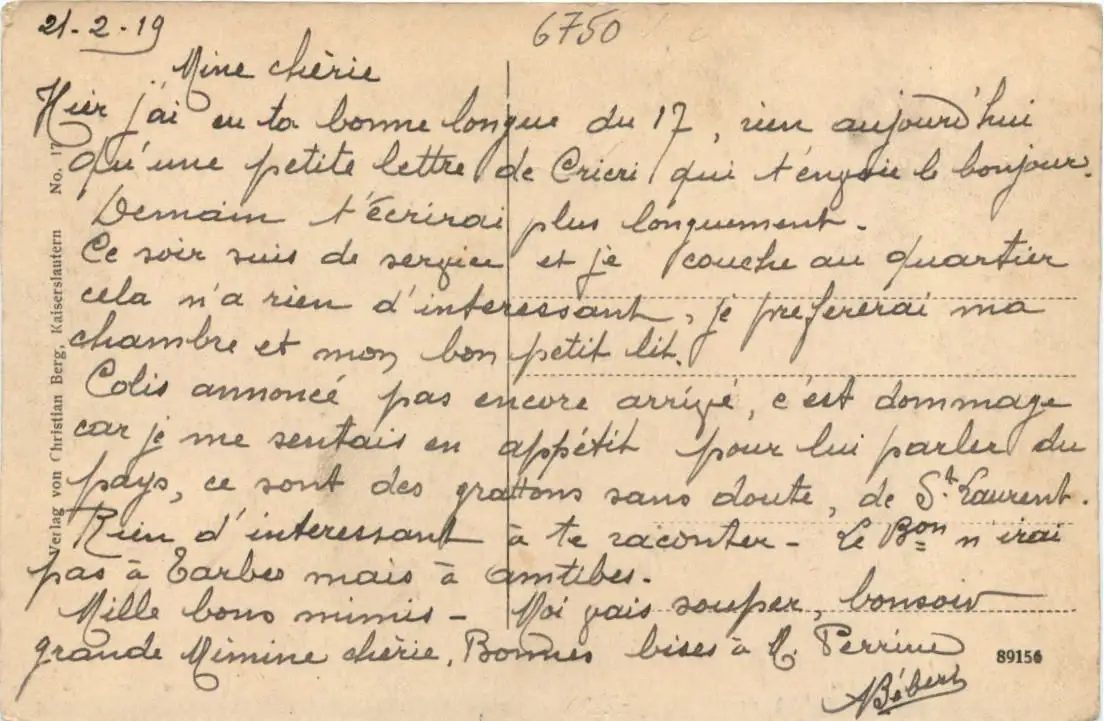 21-2-19
6750
Mine chèrie
Hier j'ai eu ta bonne longue du 17, rien aujourd'hui
qu'une petite lettre de Cricri qui t'envoie le bonjour.
Demain t'écrirai plus longuement.
Ce soir suis de service et je couche au quartier
cela n'a rien d'interessant, je prefererai ma
chambre et mon bon petit lit.
Colis annoncé pas encore arrivé, c'est dommage
car je me sentais en appétit pour lui parler du
pays, ce sont des grattons sans doute, de St Laurent.
Rien d'interessant à te raconter - Le Bon n'irai
pas à Tarbes mais à Antibes.
Mille bons mimis - Moi vais souper, bonsoir
grande Mimine chèrie, Bonnes bises à M. Perrine
Bébert
Verlag von Christian Berg, Kaiserslautern No. 17
89156